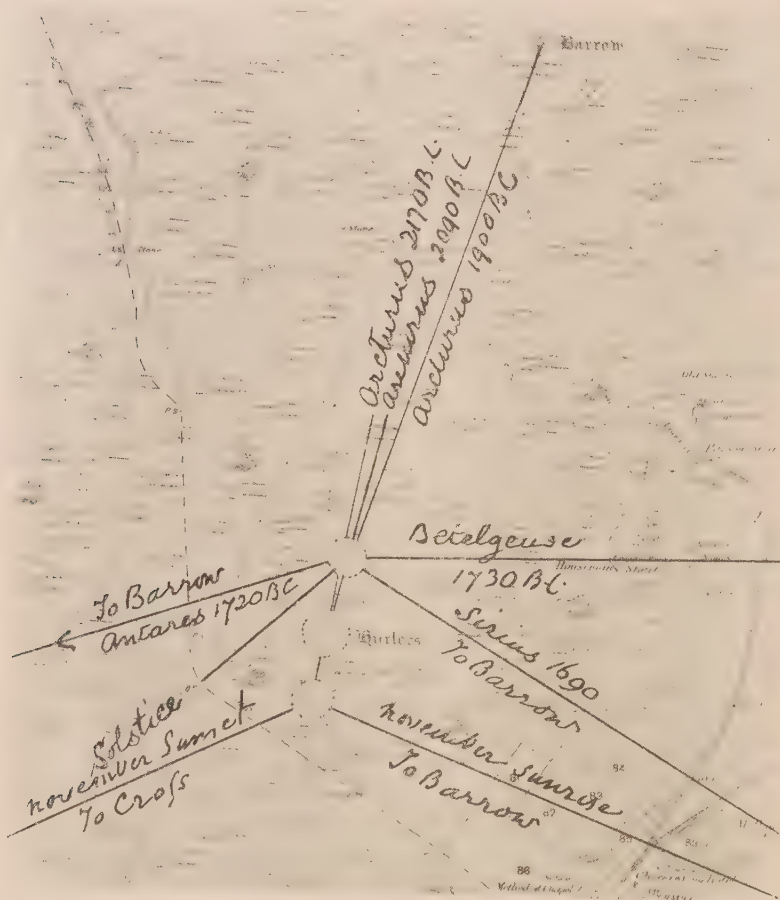 Barrow
Arcturus 2170 B.C
Arcturus 2090 B.C
Arcturus 1900 BC
Stone
Stone
Betelgeuse
1730 B.C.
To Barrow
Antares 1720 BC
Hurlers
Sirius 1690
To Barrow
Solstice
November Sunset
To Cross
November Sunrise
To Barrow
84
83
87
85
86